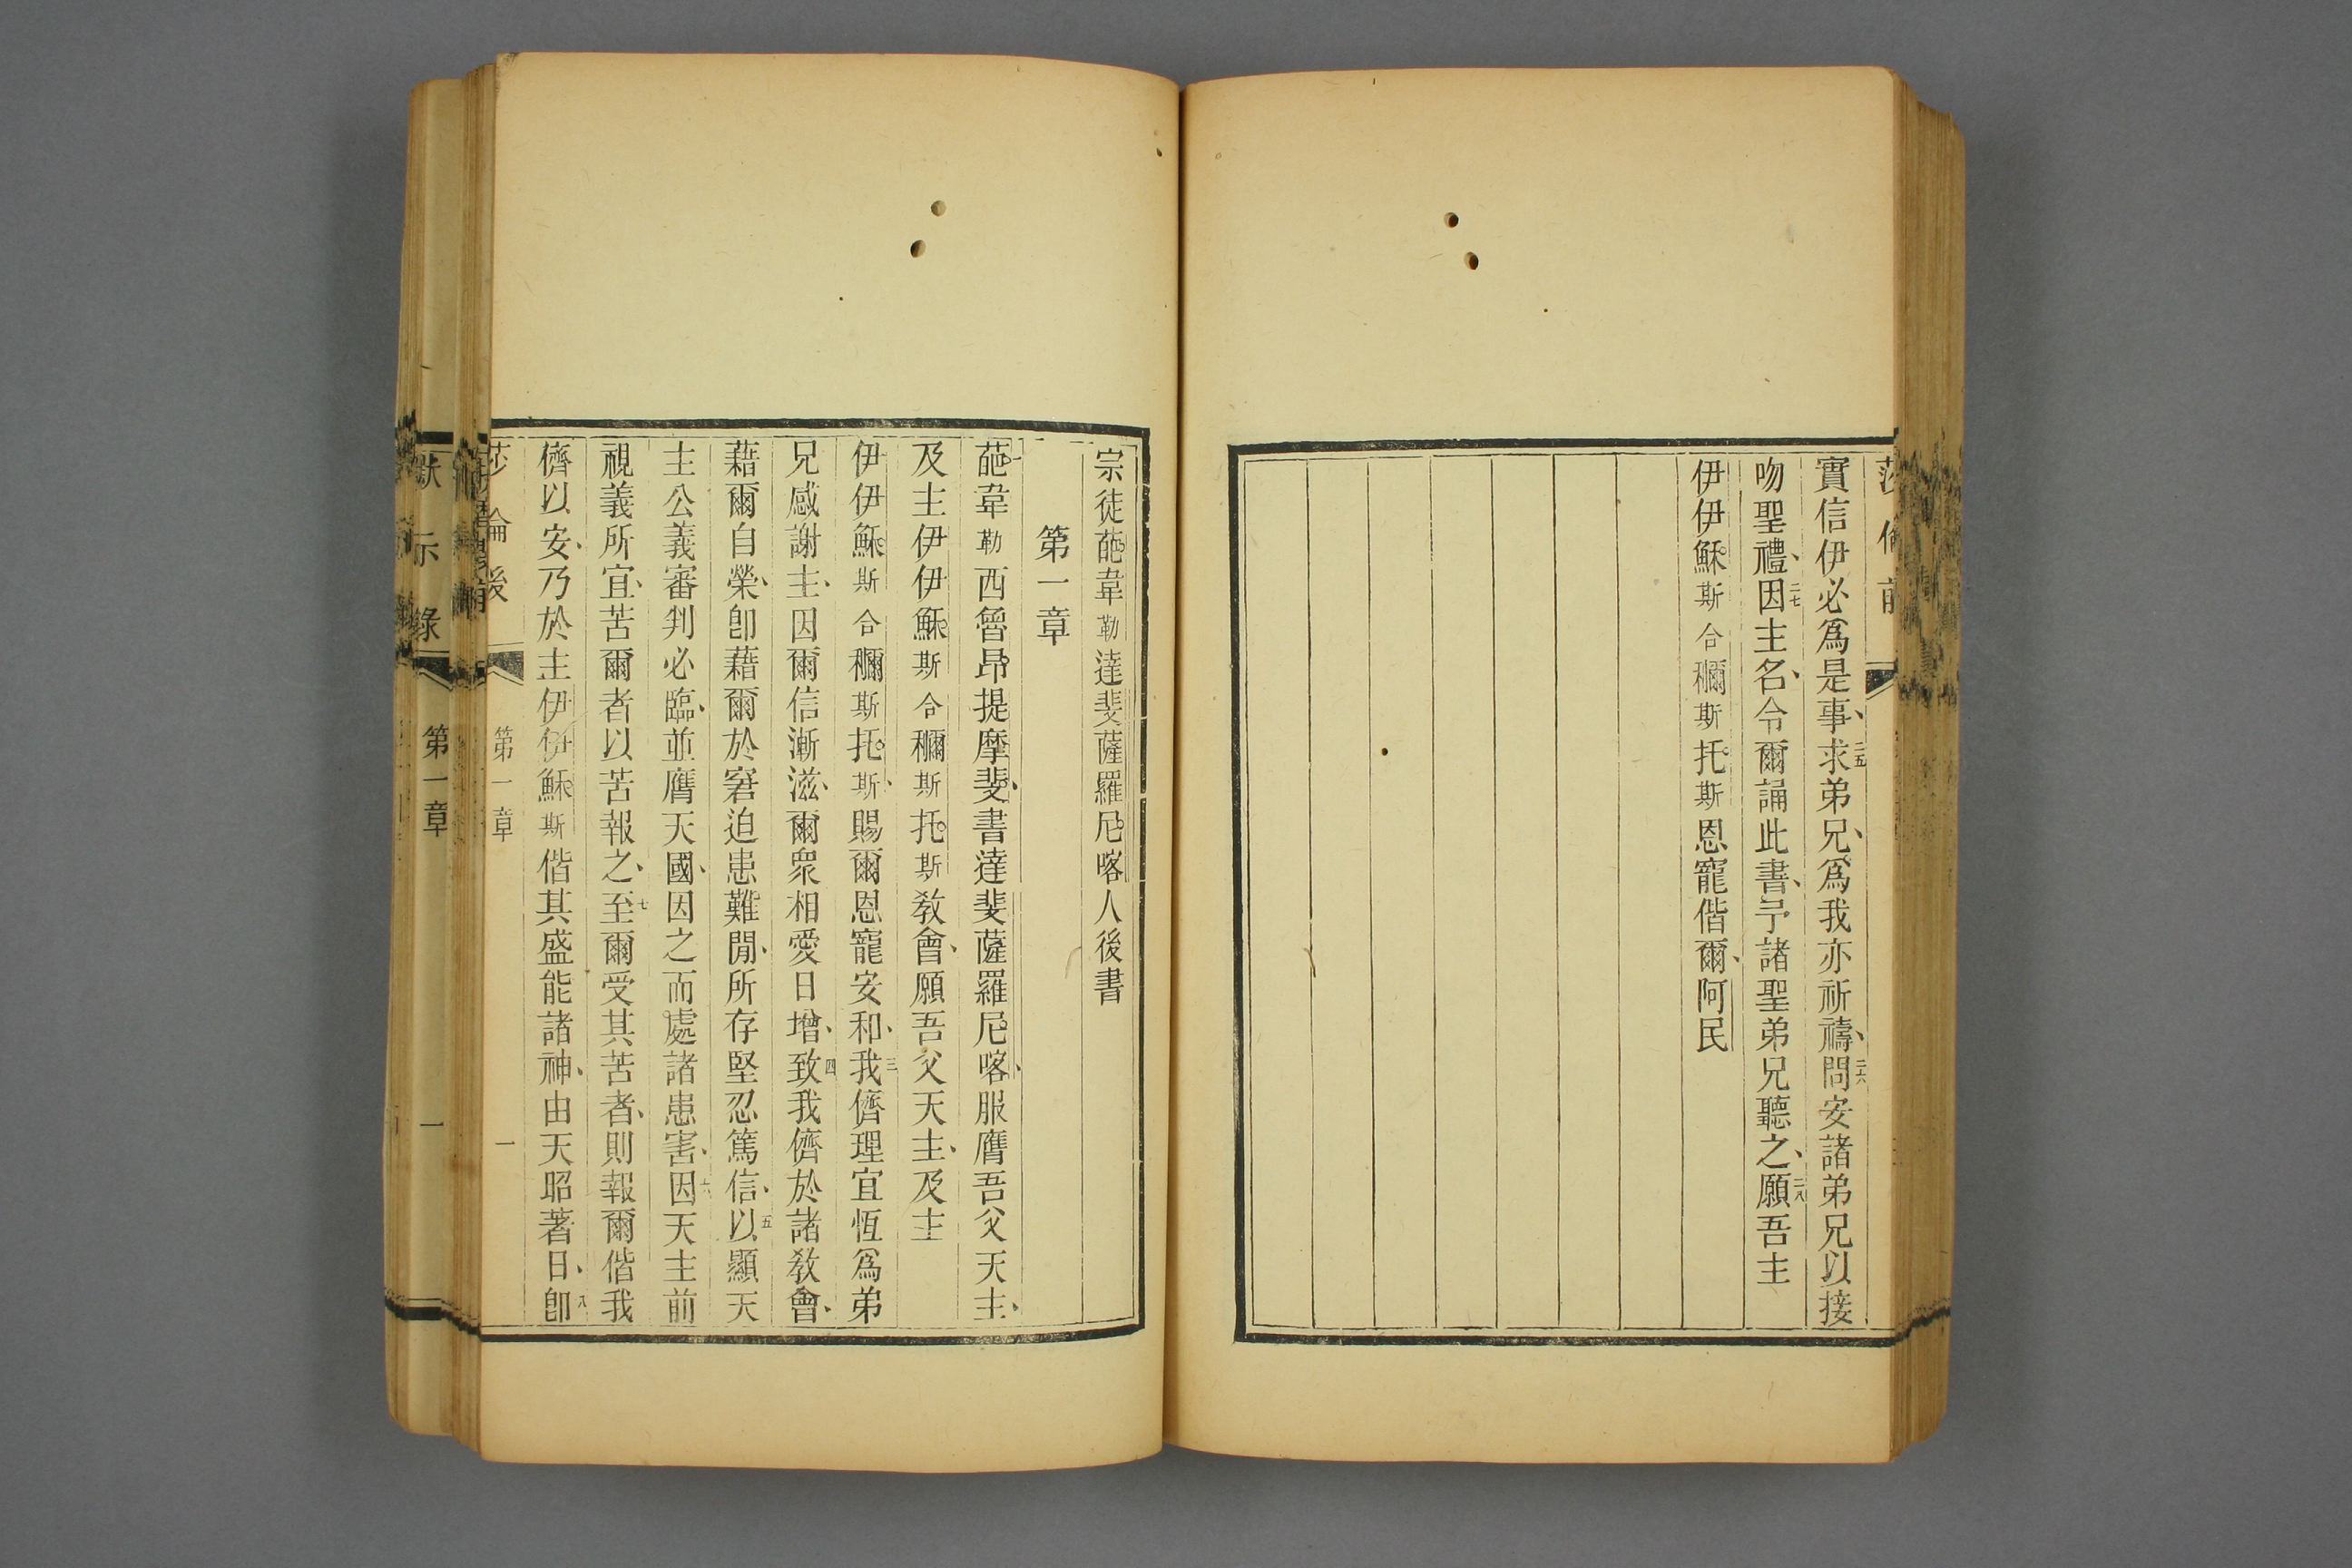 實信伊必爲是事、二五求弟兄、爲我亦祈禱、二六問安諸弟兄以接
吻聖禮、二七因主名、令爾誦此書、予諸聖弟兄聽之、二八願吾主
伊伊穌斯合穪斯托斯恩寵偕爾、阿民
宗徒葩韋勒達斐薩羅尼喀人後書
第一章
一葩韋勒西魯昂提摩斐、書達斐薩羅尼喀、服膺吾父天主、
及主伊伊穌斯合穪斯托斯敎會、願吾父天主、及主
伊伊穌斯合穪斯托斯、賜爾恩寵安和、三我儕理宜恆爲弟
兄感謝主、因爾信漸滋、爾衆相愛日增、四致我儕於諸敎會、
藉爾自榮、卽藉爾於窘迫患難閒、所存堅忍篤信、五以顯天
主公義審判必臨、並膺天國、因之而處諸患害、六因天主前
視義所宜、苦爾者以苦報之、七至爾受其苦者、則報爾偕我
儕以安、乃於主伊伊穌斯偕其盛能諸神、由天昭著日、八卽
莎倫後 第一章 一
默示錄 第一章 一